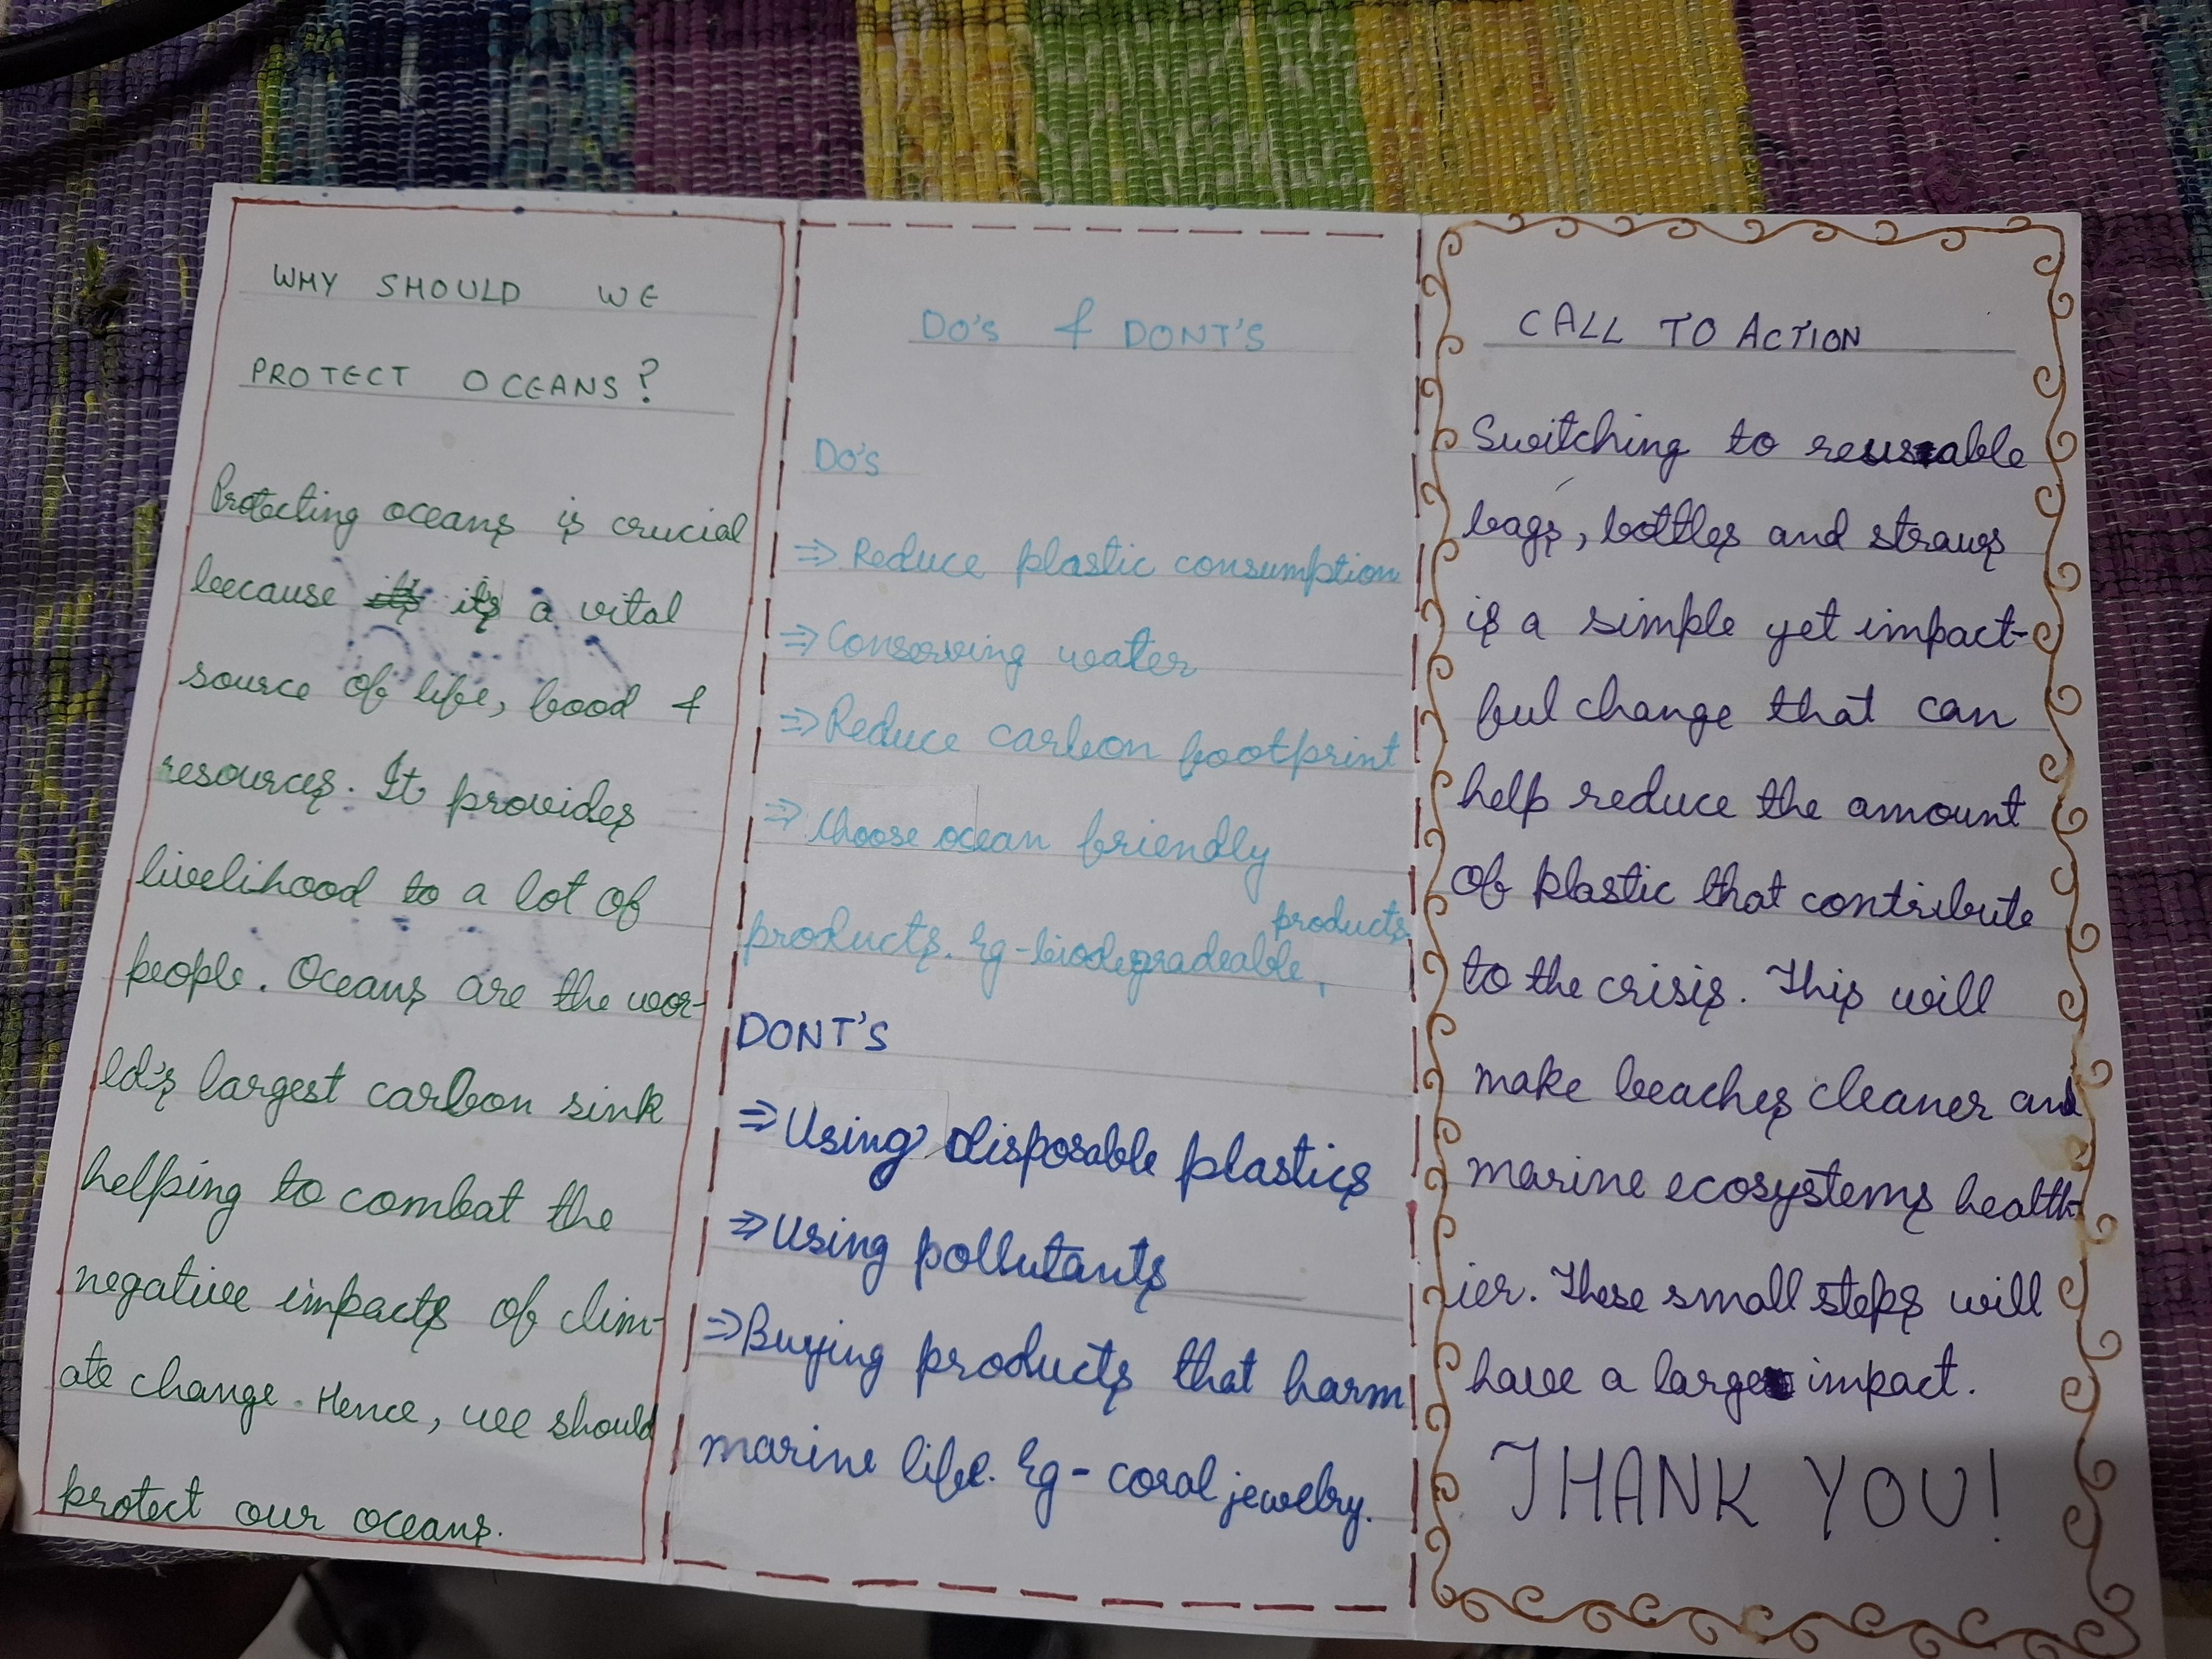 WHY SHOULD WE
PROTECT OCEANS?
Protecting oceans is crucial
because its its a vital
source of life, food &
resources. It provides
livelihood to a lot of
people. Oceans are the wor-
ld's largest carbon sink
helping to combat the
negative impacts of clim-
ate change. Hence, we should
protect our oceans.
DO'S & DONT'S
DO'S
⇒ Reduce plastic consumption
⇒ Conserving water
⇒ Reduce carbon footprint
⇒ Choose ocean friendly
products. Eg - biodegradeable products
DONT'S
⇒ Using disposable plastics
⇒ Using pollutants
⇒ Buying products that harm
marine life. Eg - coral jewelry.
CALL TO ACTION
Switching to reusable
bags, bottles and straws
is a simple yet impact-
ful change that can
help reduce the amount
of plastic that contribute
to the crisis. This will
make beaches cleaner and
marine ecosystems health-
ier. These small steps will
have a large impact.
THANK YOU!